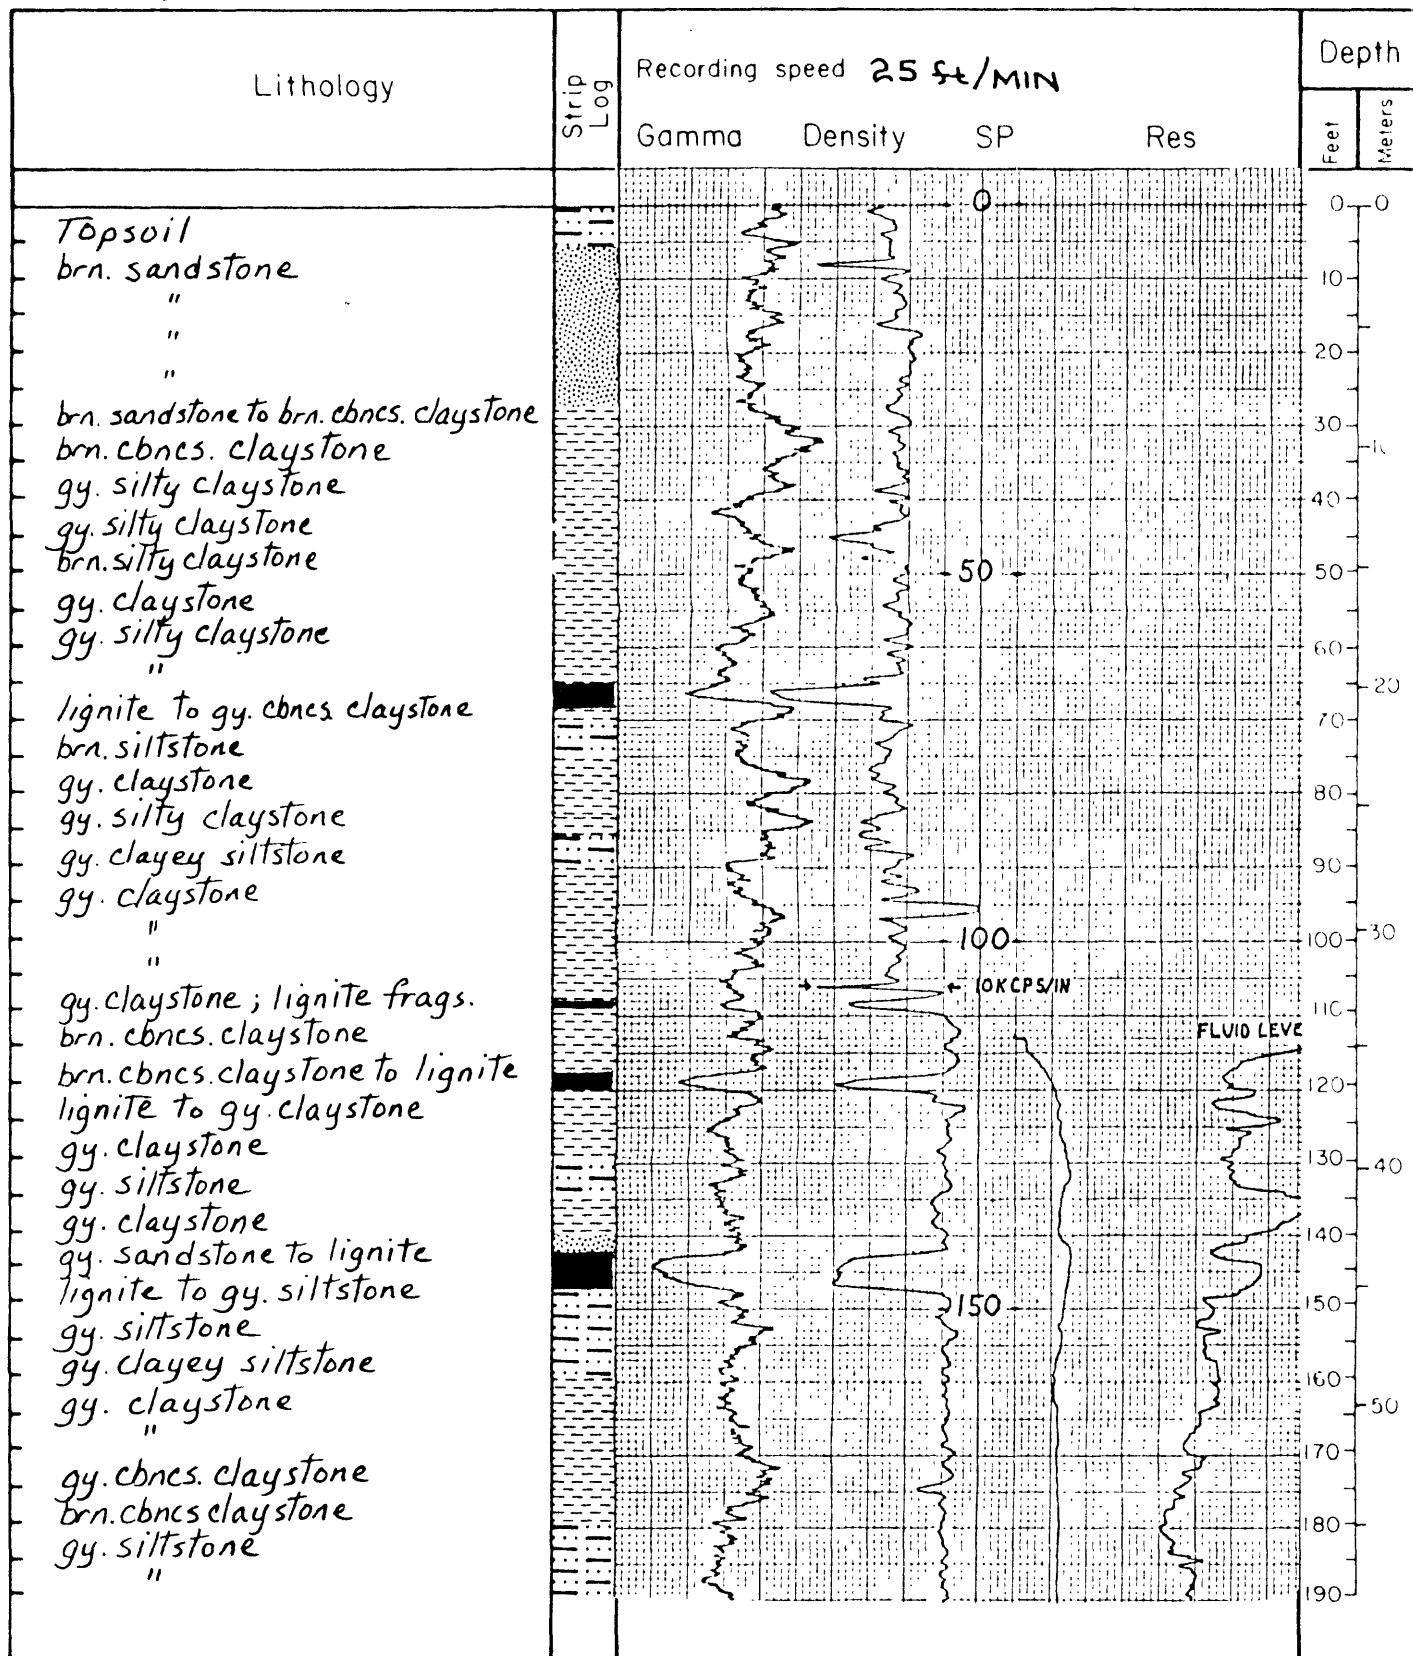 Lithology
Strip Log
Recording speed 25 ft/MIN
Gamma Density SP Res
Depth
Feet
Meters
Topsoil
brn. sandstone
"
"
"
brn. sandstone to brn. cbncs. claystone
brn. cbncs. claystone
gy. silty claystone
gy. silty claystone
brn. silty claystone
gy. claystone
gy. silty claystone
"
lignite to gy. cbncs. claystone
brn. siltstone
gy. claystone
gy. silty claystone
gy. clayey siltstone
gy. claystone
"
"
gy. claystone ; lignite frags.
brn. cbncs. claystone
brn. cbncs. claystone to lignite
lignite to gy. claystone
gy. claystone
gy. siltstone
gy. claystone
gy. sandstone to lignite
lignite to gy. siltstone
gy. siltstone
gy. clayey siltstone
gy. claystone
"
gy. cbncs. claystone
brn. cbncs claystone
gy. siltstone
"
0
50
100
10KCPS/IN
FLUID LEVE
150
0
10
20
30
40
50
60
70
80
90
100
110
120
130
140
150
160
170
180
190
0
20
30
40
50